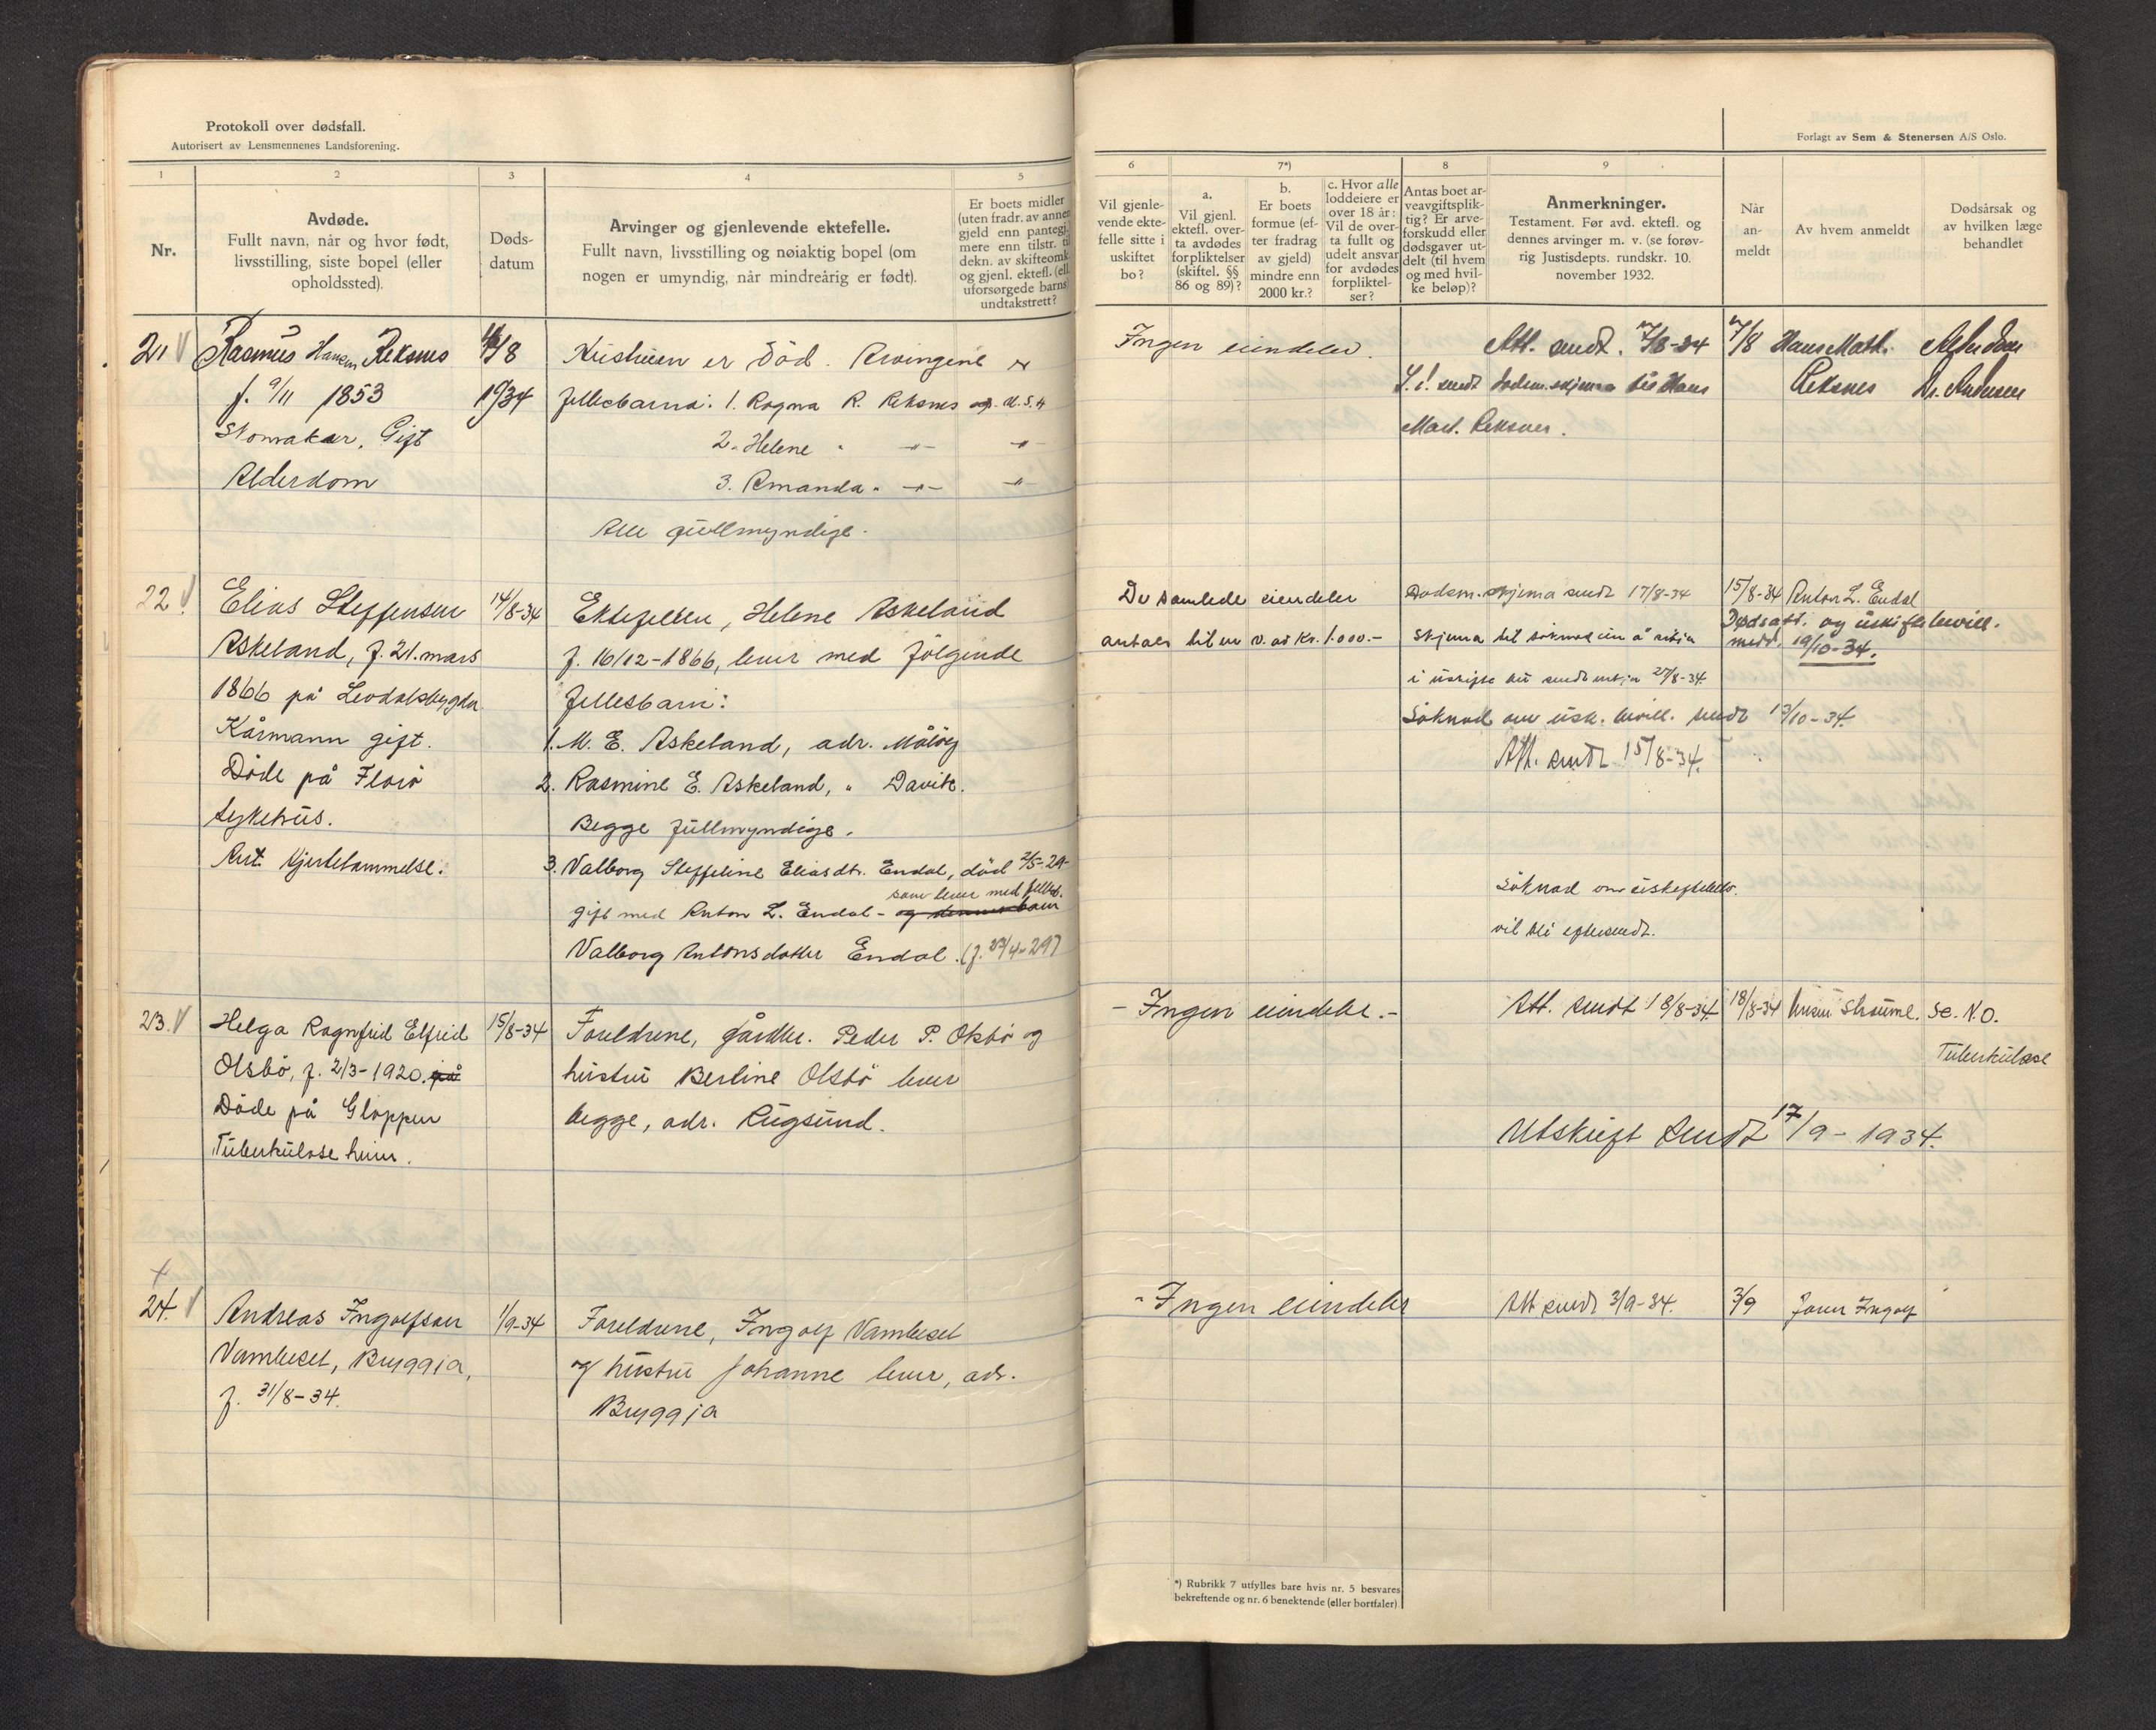 Protokoll over dødsfall.
Autorisert av Lensmennenes Landsforening.
1
2
3
4
5
Nr.
Avdøde.
Fullt navn, når og hvor født,
livsstilling, siste bopel (eller
opholdssted).
Døds-
datum
Arvinger og gjenlevende ektefelle.
Fullt navn, livsstilling og nøiaktig bopel (om
nogen er umyndig, når mindreårig er født).
Er boets midler
(uten fradr. av annen
gjeld enn pantegj.
mere enn tilstr. til
dekn. av skifteomk.
og gjenl. ektefl. (ell.
uforsørgede barns)
undtakstrett?
21
Rasmus Hansen Reksnes
f. 9/11 1853
Skomakar, Gift
Alderdom
/8
1934
er död. Arvingene
Fellesbarna: 1. Ragna R. Reksnes
2. Helene " -"- -"-
3. Amanda " -"- -"-
Alle fullmyndige.
22.
Elias Steffensen
Askeland, f. 21. mars
1866 på
Kårmann gift.
Döde på Florö
sykehus.
Hjertelammelse.
14/8-34
Ektefellen, Helene Askeland
f. 16/12-1866, lever med følgende
Fellesbarn:
1. M. E. Askeland, adr. Måløy
2. Rasmine E. Askeland, " Davik.
Begge fullmyndige.
3. Valborg Steffeline Eliasdtr. Endal, död 2/5-29
som lever med fellesb.
gift med Anton L. Endal - og dennes barn
Valborg Antonsdotter Endal. (f. 23/4-29)
23.
Helga Ragnfrid Elfrid
Olsbö, f. 2/3-1920. på
Döde på Gloppen
Tuberkulose heim.
15/8-34
Foreldrene, gårdbr. Peder P. Olsbö og
hustru Berline Olsbö lever
begge, adr. Rugsund.
+
24.
Andreas Ingolfson
Vamleset, Bryggja,
f. 31/8-34.
1/9-34
Foreldrene, Ingolf Vamleset
og hustru Johanne lever, adr.
Bryggja
Forlagt av Sem & Stenersen A/S Oslo.
6
7*)
8
9
Vil gjenle-
vende ekte-
felle sitte i
uskiftet
bo?
a.
Vil gjenl.
ektefl. over-
ta avdødes
forpliktelser
(skiftel. §§
86 og 89)?
b.
Er boets
formue (ef-
ter fradrag
av gjeld)
mindre enn
2000 kr.?
c. Hvor alle
loddeiere er
over 18 år:
Vil de over-
ta fullt og
udelt ansvar
for avdødes
forpliktel-
ser?
Antas boet ar-
veavgiftsplik-
tig? Er arve-
forskudd eller
dødsgaver ut-
delt (til hvem
og med hvil-
ke beløp)?
Anmerkninger.
Testament. Før avd. ektefl. og
dennes arvinger m. v. (se forøv-
rig Justisdepts. rundskr. 10.
november 1932.
Når
an-
meldt
Av hvem anmeldt
Dødsårsak og
av hvilken læge
behandlet
Ingen eiendeler.
Att. sendt. 17/8-34
17/8
Hans Math.
Reksnes
Alderdom
Dr. Andersen
S. d. sendt dødsm.skjema til Hans
Mart. Reksnes.
De samlede eiendeler
antaes til en v. av Kr. 1.000.-
Dødsm. skjema sendt 17/8-34
Skjema til søknad um å sitja
i uskifte bu sendt enkja 27/8-34.
Søknad om usk. bevill. sendt 13/10-34.
Att. sendt 15/8-34.
Søknad om
vil bli eftersendt.
15/8-34 Anton L. Endal
Dødsatt. og uskiftebevill.
medd. 19/10-34.
- Ingen eiendeler.-
Att. sendt 18/8-34.
18/8-34
Straume.
Se. N.O.
Tuberkulose
Utskrift sendt 17/9-1934.
- Ingen eiendeler
Att sendt 3/9-34.
3/9
Ingolf
*) Rubrikk 7 utfylles bare hvis nr. 5 besvares
bekreftende og nr. 6 benektende (eller bortfaler)